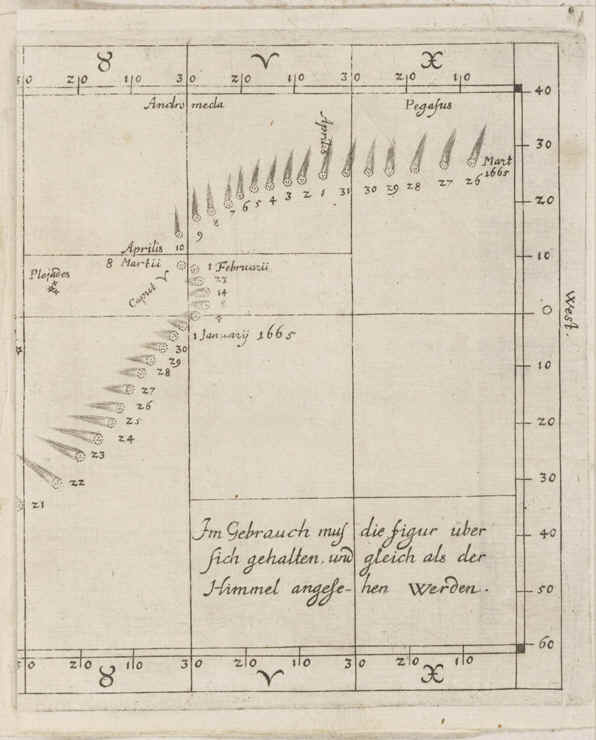 ♉ ♈ ♓
30 20 10 30 20 10 30 20 10
40
Andromeda Pegasus
Aprilis
30
Mart
1665
26
27
28
29
30
31
1
2
3
4
5
6
7
8
9
20
10
Aprilis
8 Martii
10
1 Februarii
Plejades
Caput ♈
14
4
0
West.
1 Januarij 1665
30
29
28
10
27
26
25
20
24
23
22
30
21
Im Gebrauch muſ die figur uber
ſich gehalten, und gleich als der
Himmel angeſe-hen Werden.
40
50
60
30 20 10 30 20 10 30 20 10
♉ ♈ ♓